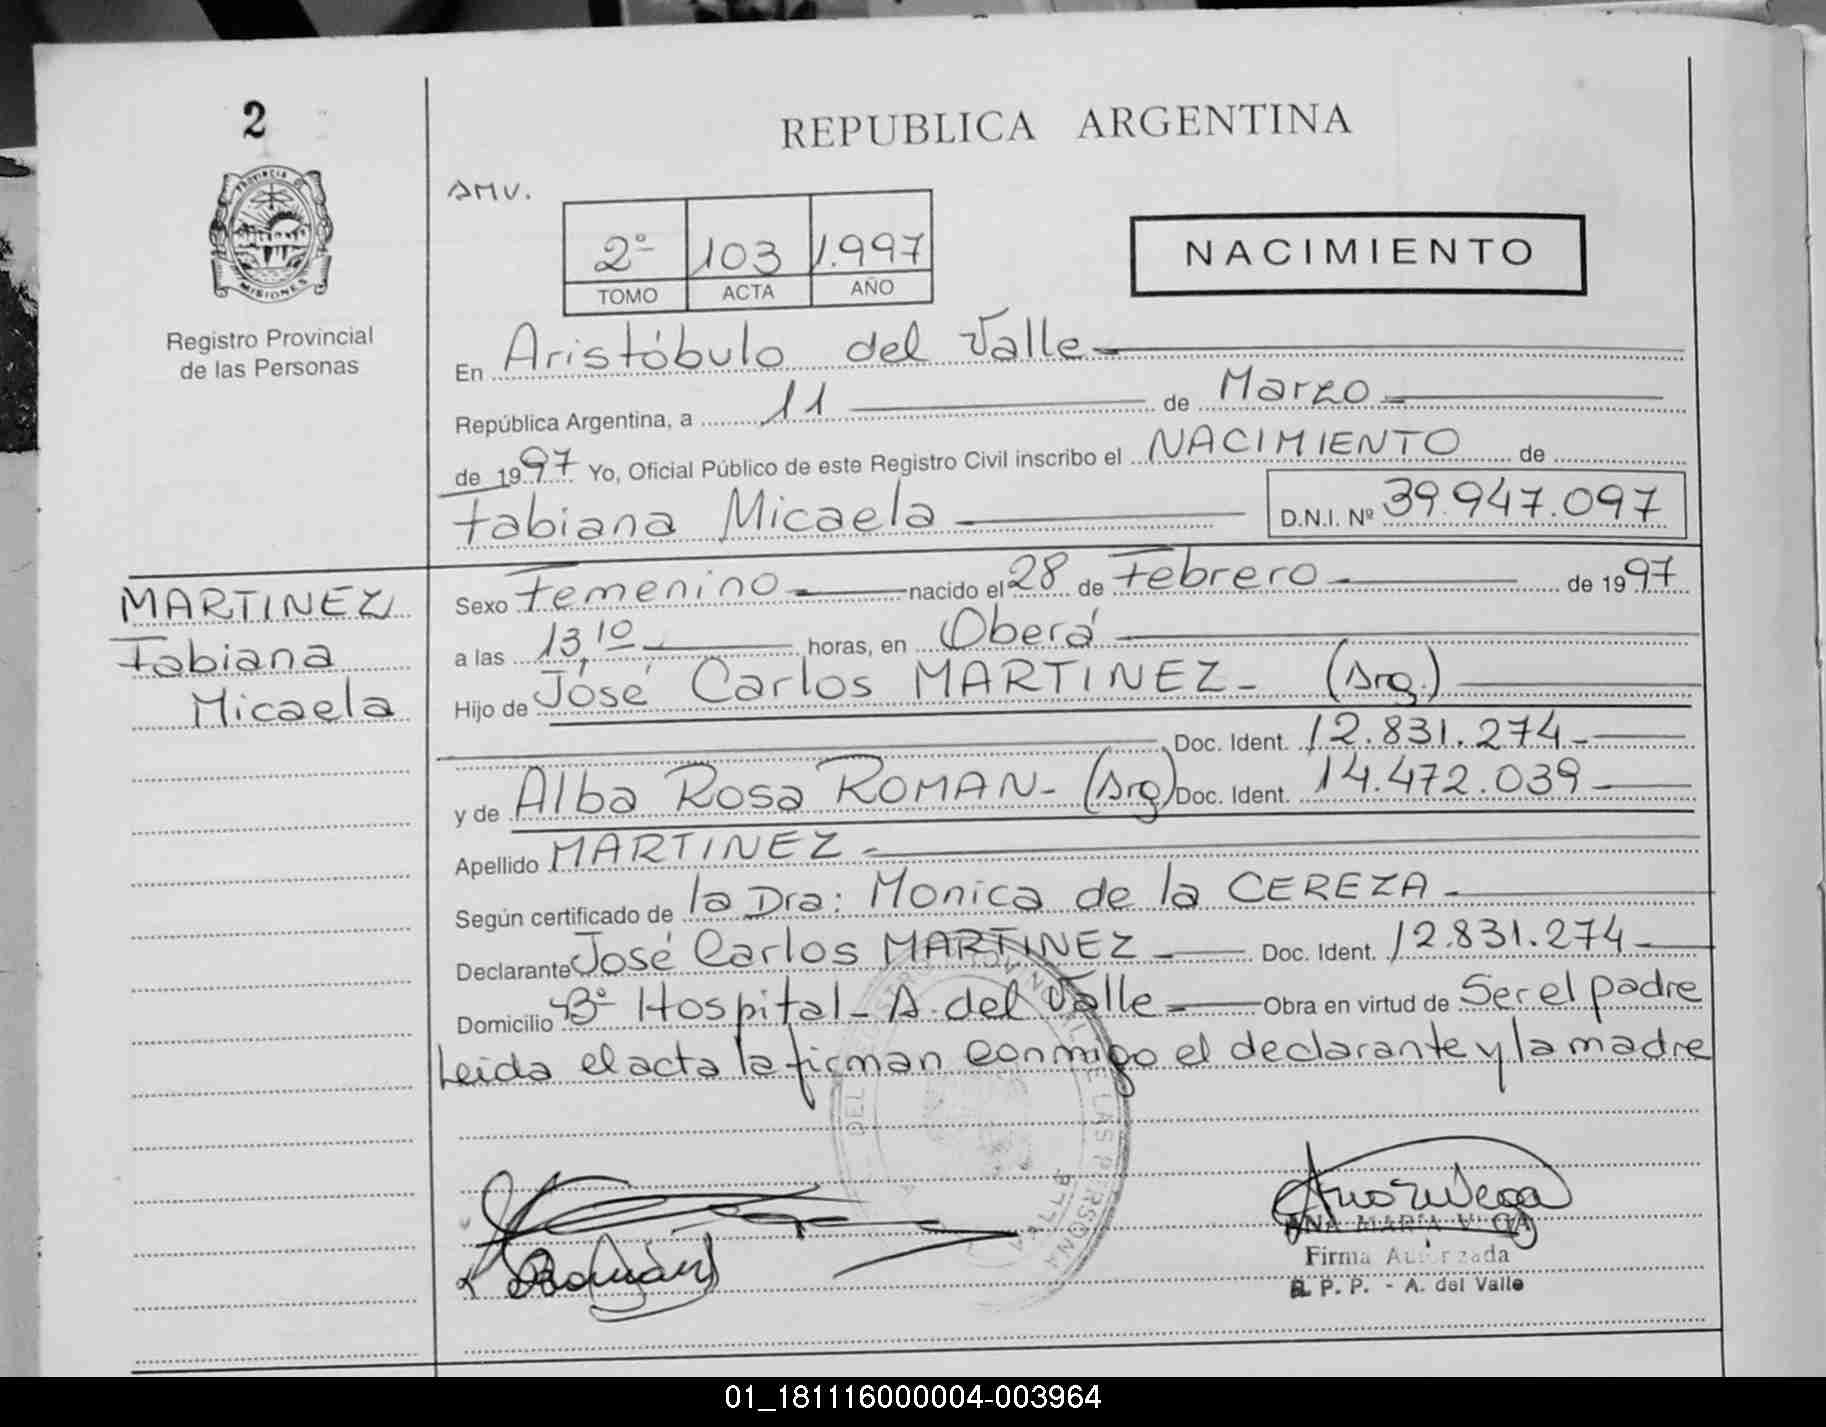 2
REPUBLICA ARGENTINA
PROVINCIA DE
MISIONES
Registro Provincial
de las Personas
AMV.
2º 103 1.997
TOMO ACTA AÑO
NACIMIENTO
En Aristóbulo del Valle
República Argentina, a 11 de Marzo
de 1997 Yo, Oficial Público de este Registro Civil inscribo el NACIMIENTO de
Fabiana Micaela D.N.I. Nº 39.947.097
MARTINEZ
Fabiana
Micaela
Sexo Femenino nacido el 28 de Febrero de 1997
a las 13,10 horas, en Oberá
Hijo de José Carlos MARTINEZ- (Arg.)
Doc. Ident. 12.831.274-
y de Alba Rosa ROMAN- (Arg) Doc. Ident. 14.472.039
Apellido MARTINEZ-
Según certificado de la Dra: Monica de la CEREZA-
Declarante José Carlos MARTINEZ Doc. Ident. 12.831.274
Domicilio Bº Hospital- A. del Valle Obra en virtud de Ser el padre
Leida el acta la firman conmigo el declarante y la madre
DEL REGISTRO PROVINCIAL DE LAS PERSONAS
VALLE
Román
ANA MARIA VEGA
Firma Autorizada
R. P. P. - A. del Valle
01_181116000004-003964